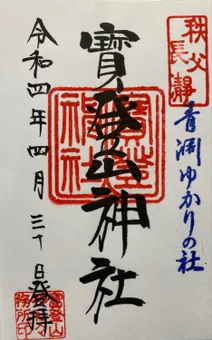 秩父
長瀞
青淵ゆかりの社
寳登山神社
寳登山
神社
令和四年四月三十日登拝
寳登山
神社
務所印